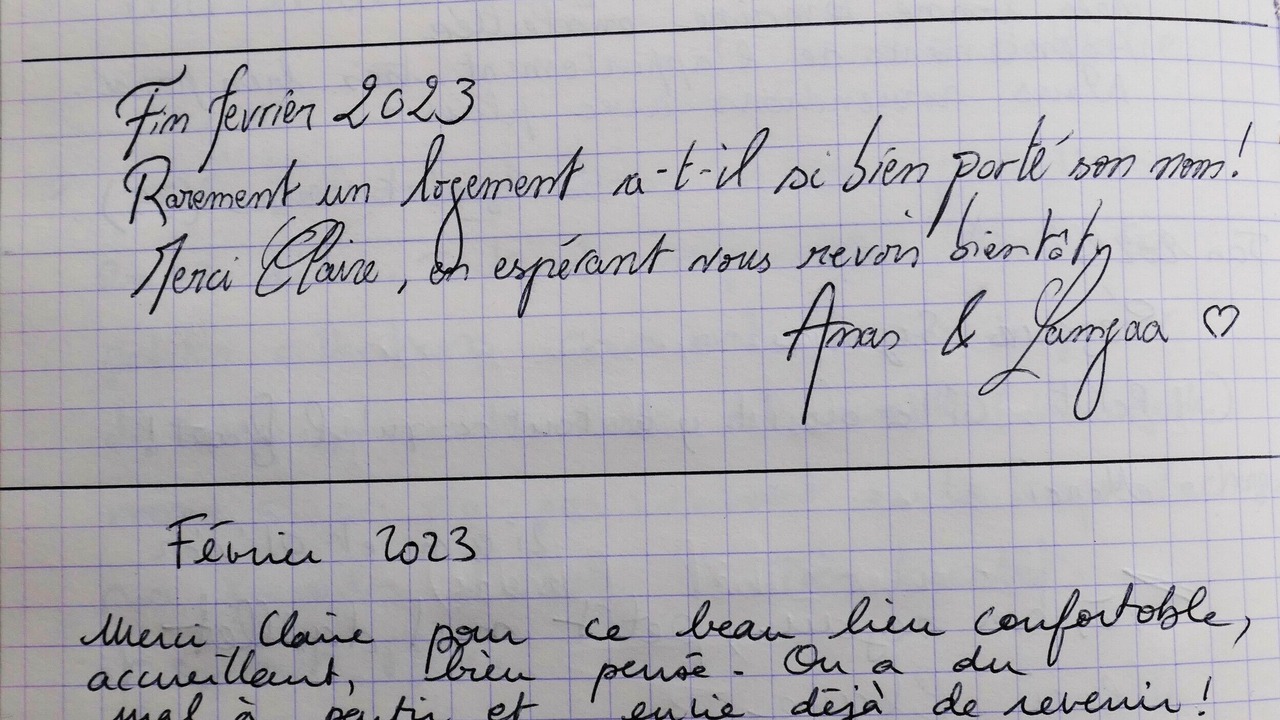 Fin fevrier 2023
Rarement un logement a-t-il si bien porté son nom!
Merci Claire, en espérant vous revoir bientôt,
Anas & Lamyaa ♡
Février 2023
Merci Claire pour ce beau lieu confortable,
accueillant, bien pensé. On a du
mal à partir et envie déjà de revenir!